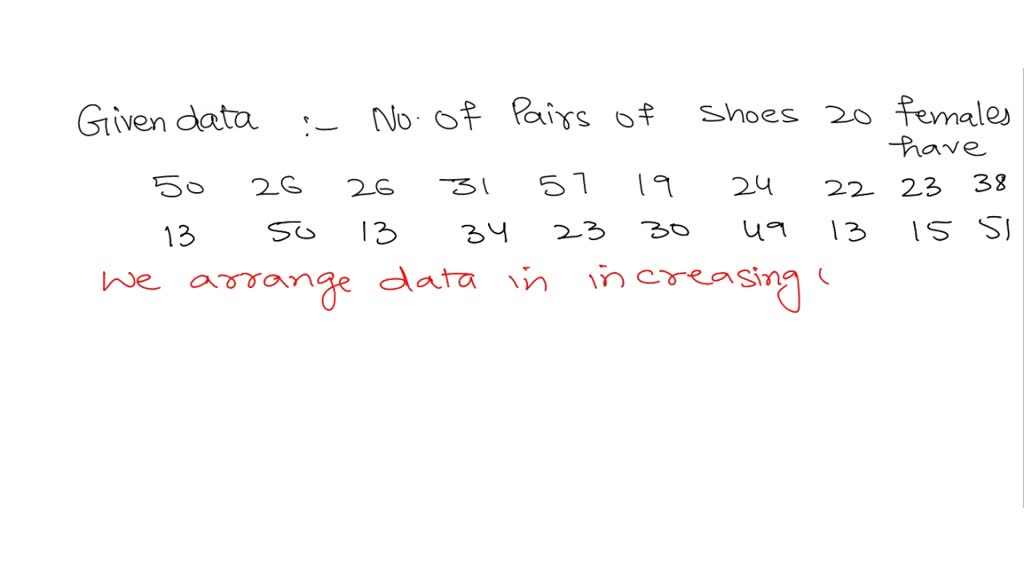 Given data :- No. of Pairs of shoes 20 females
have
50 26 26 31 57 19 24 22 23 38
13 50 13 34 23 30 49 13 15 51
We arrange data in increasing (